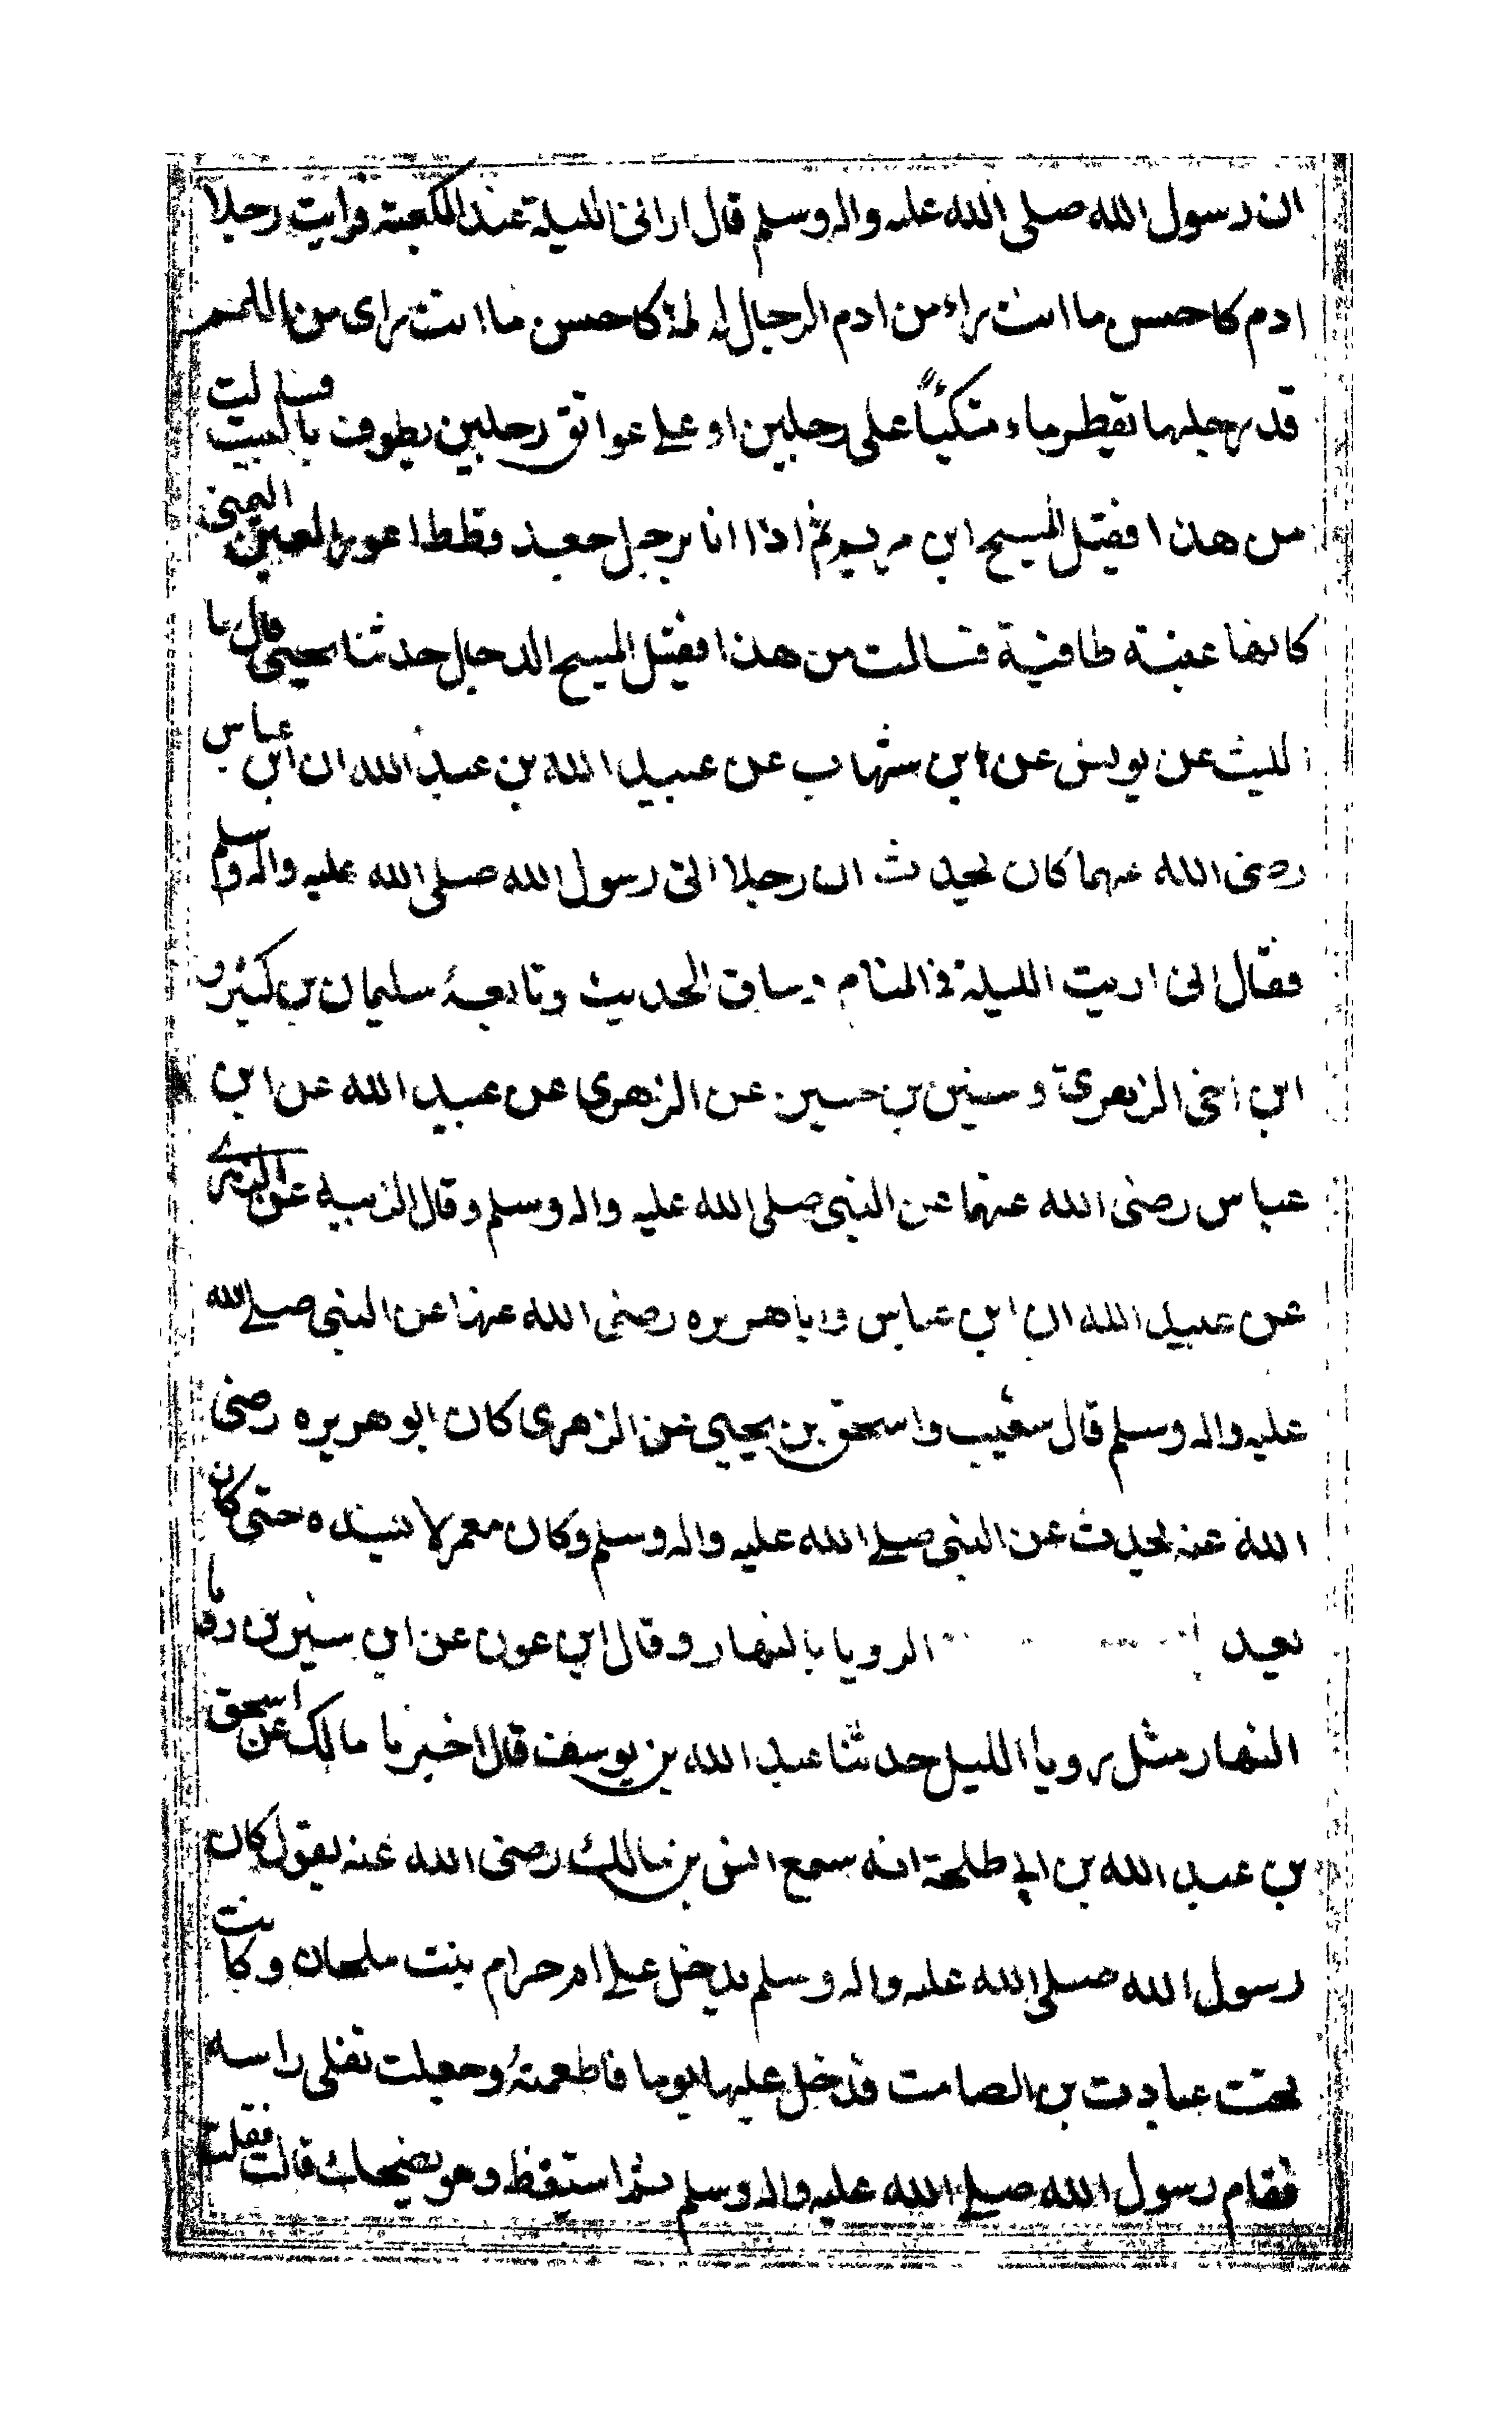 ان رسول الله صلى الله عليه واله وسلم قال اراني الليلة عند الكعبة فرايت رجلا
ادم كاحسن ما انت راء من ادم الرجال له لمة كاحسن ما انت راى من اللمم
قد رجلها تقطر ماء متكيًا على رجلين او على عواتق رجلين يطوف بالبيت فسالت
من هذا فقيل المسيح ابن مريم ثم اذا انا برجل جعد قطط اعور العين اليمنى
كانها عنبة طافية فسالت من هذا فقيل المسيح الدجال حدثنا يحيى قال نا
الليث عن يونس عن ابن شهاب عن عبيد الله بن عبد الله ان ابن عباس
رضى الله عنهما كان يحدث ان رجلا اتى رسول الله صلى الله عليه واله وسلم
فقال انى اريت الليلة في المنام وساق الحديث وتابعه سليمان بن كثير و
ابن اخى الزهرى و سفين بن حسين عن الزهرى عن عبيد الله عن ابن
عباس رضى الله عنهما عن النبى صلى الله عليه واله وسلم وقال الزبيد عن الزهرى
عن عبيد الله ان ابن عباس وابا هريره رضى الله عنهما عن النبى صلى الله
عليه واله وسلم قال شعيب واسحق بن يحيى عن الزهرى كان ابو هريره رضى
الله عنه يحدث عن النبى صلى الله عليه واله وسلم وكان معمر لا يسنده حتى كان
بعد الرويا بالنهار وقال ابن عون عن ابن سيرين رويا
النهار مثل رويا الليل حدثنا عبد الله بن يوسف قال اخبرنا مالك عن اسحق
بن عبد الله بن ابي طلحة انه سمع انس بن مالك رضى الله عنه يقول كان
رسول الله صلى الله عليه واله وسلم يدخل على ام حرام بنت ملحان وكانت
تحت عبادت بن الصامت فدخل عليها يوما فاطعمته وجعلت تفلى راسه
فقام رسول الله صلى الله عليه واله وسلم ثم استيقظ وهو يضحك قالت فقلت